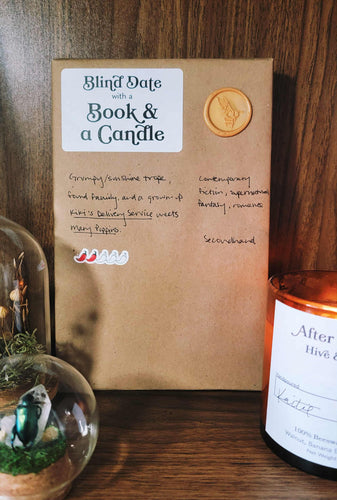 Blind Date
with a
Book &
a Candle
Grumpy/sunshine trope,
found family, and a grown-up
Kiki's Delivery Service meets
Mary Poppins.
Contemporary
fiction, supernatural
fantasy, romance
Secondhand
After
Hive &
100% Beeswa
Walnut, Banana
Net Weight